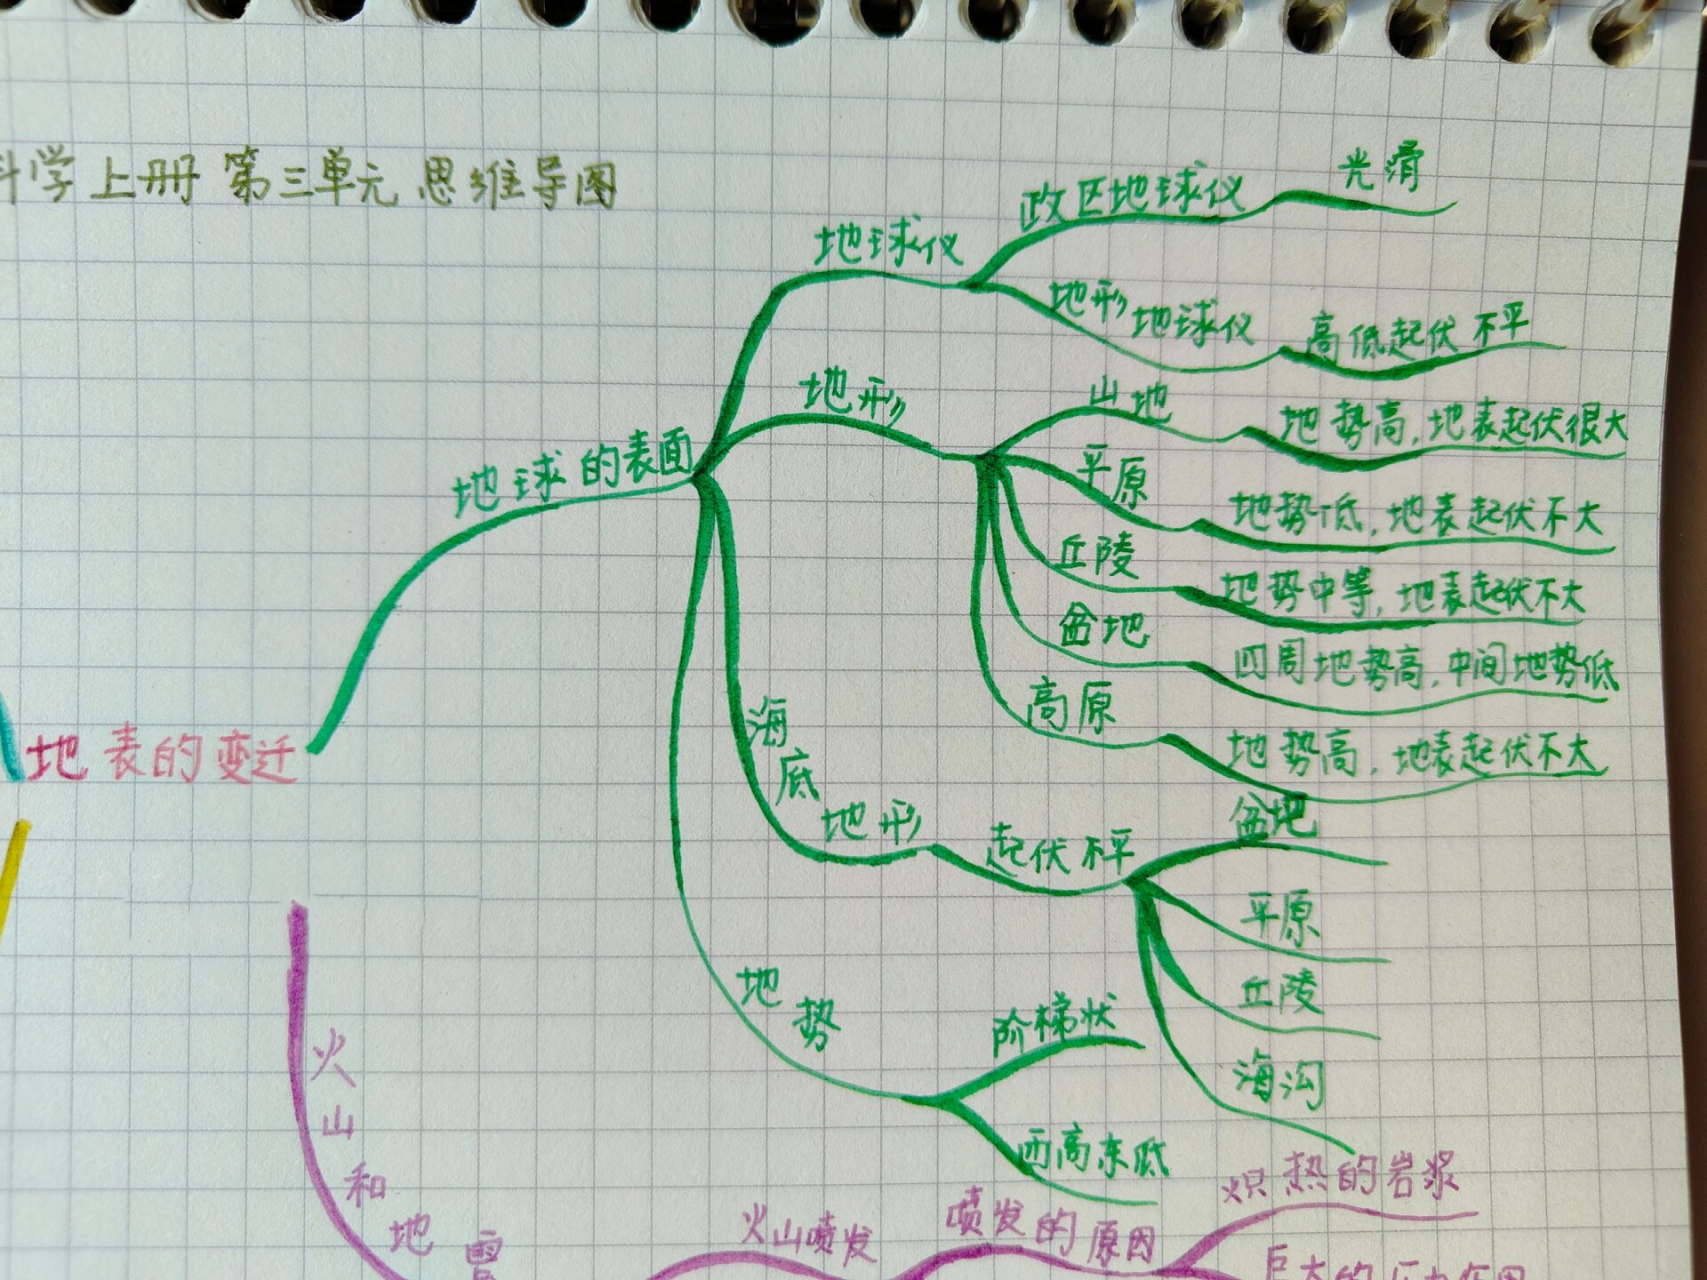 学上册第三单元思维导图
地表的变迁
地球的表面
地球仪
政区地球仪
光滑
地形地球仪
高低起伏不平
地形
山地
地势高,地表起伏很大
平原
地势低,地表起伏不大
丘陵
地势中等,地表起伏不大
盆地
四周地势高,中间地势低
高原
地势高,地表起伏不大
海底地形
起伏不平
盆地
平原
丘陵
海沟
地势
阶梯状
西高东低
火山和地
火山喷发
喷发的原因
炽热的岩浆
巨大的